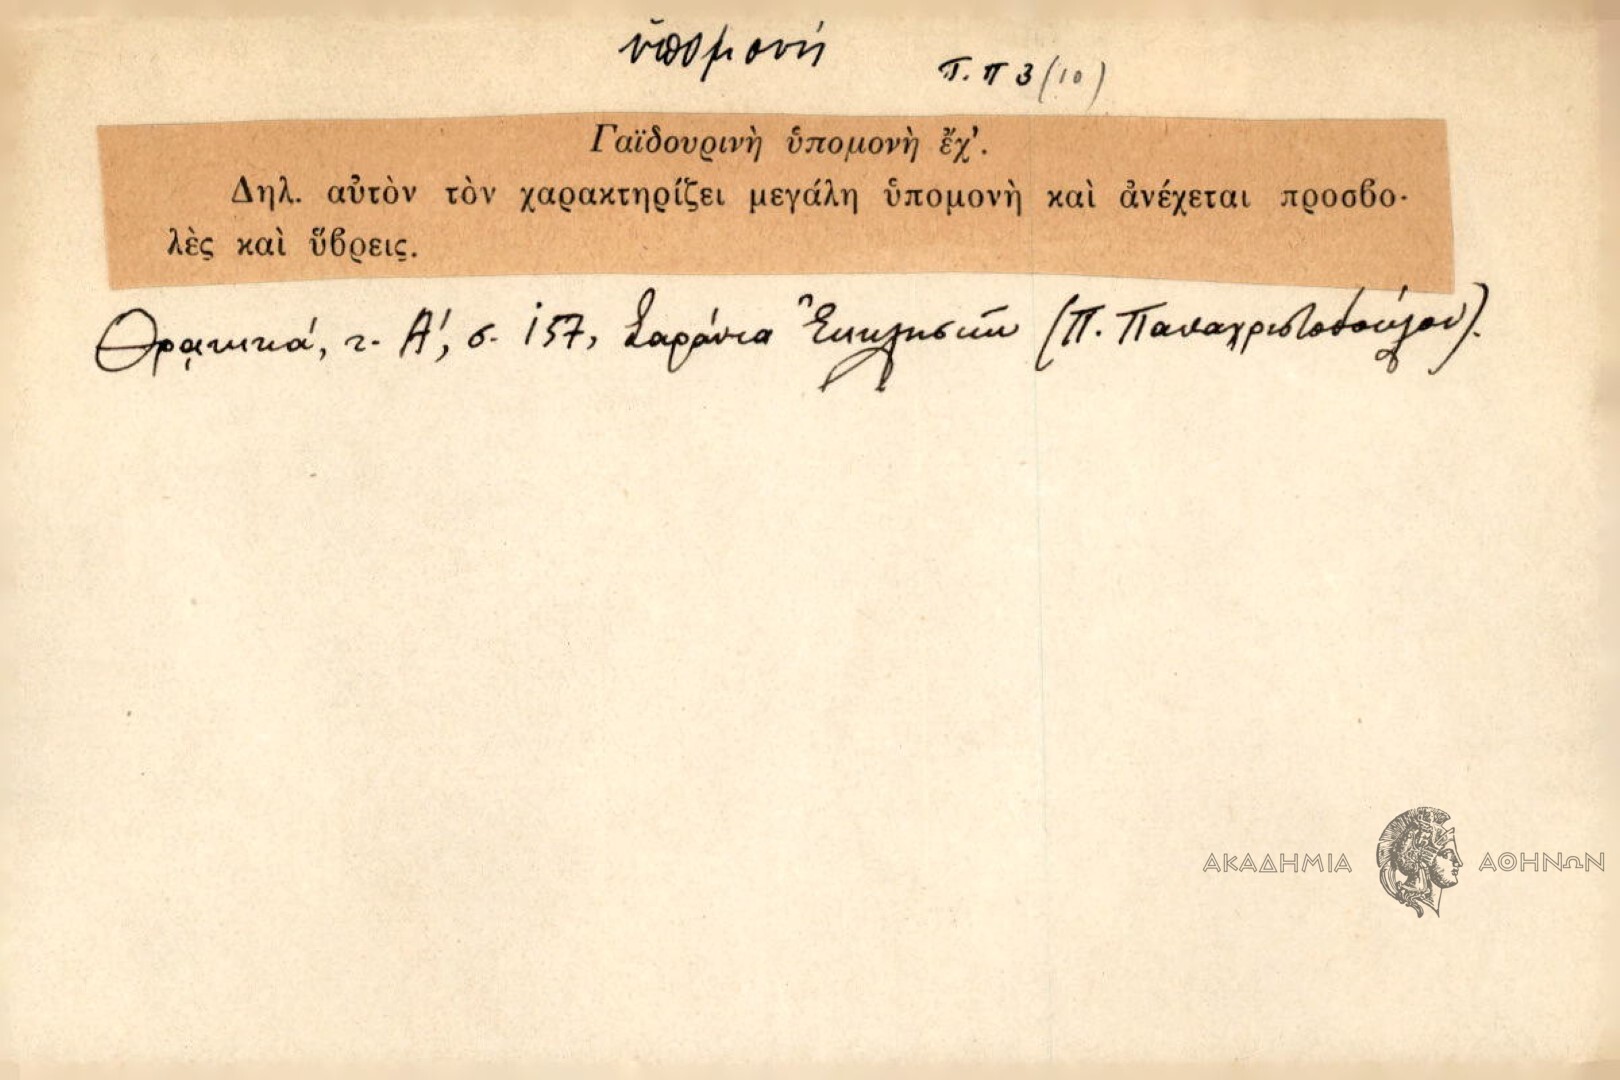 ὑπομονή
Π. π 3 (10)
Γαϊδουρινὴ ὑπομονὴ ἔχ'.
Δηλ. αὐτὸν τὸν χαρακτηρίζει μεγάλη ὑπομονὴ καὶ ἀνέχεται προσβο-
λὲς καὶ ὕβρεις.
Θρακικά, τ. Α', σ. 157, Σαράντα Ἐκκλησιῶν (Π. Παπαχριστοδούλου).
ΑΚΑΔΗΜΙΑ ΑΘΗΝΩΝ